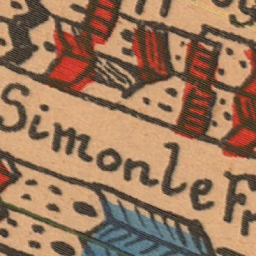 Simonle Fr